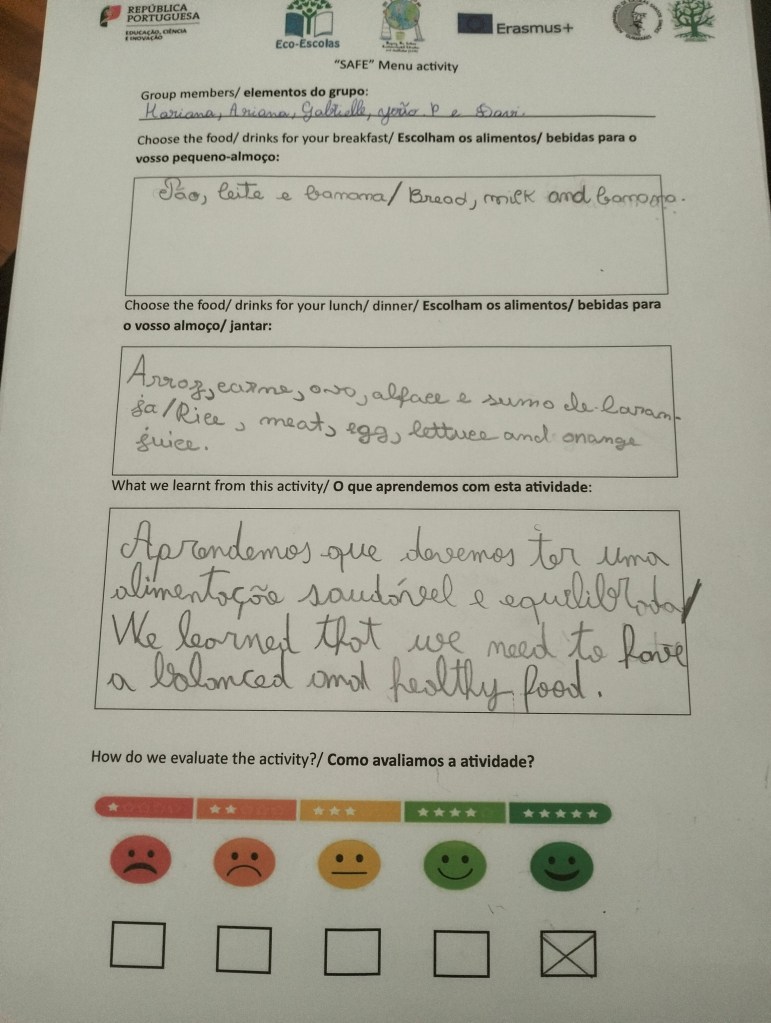 REPÚBLICA
PORTUGUESA
EDUCAÇÃO, CIÊNCIA
E INOVAÇÃO
Eco-Escolas
Erasmus+
"SAFE" Menu activity
Group members/ elementos do grupo:
Mariana, Ariana, Gabrielle, João. P e Davi.
Choose the food/ drinks for your breakfast/ Escolham os alimentos/ bebidas para o
vosso pequeno-almoço:
Pão, leite e banana/ Bread, milk and banana.
Choose the food/ drinks for your lunch/ dinner/ Escolham os alimentos/ bebidas para
o vosso almoço/ jantar:
Arroz, carne, ovo, alface e sumo de laran-
ja/Rice, meat, egg, lettuce and orange
juice.
What we learnt from this activity/ O que aprendemos com esta atividade:
Aprendemos que devemos ter uma
alimentação saudável e equilibrada/
We learned that we need to have
a balanced and healthy food.
How do we evaluate the activity?/ Como avaliamos a atividade?